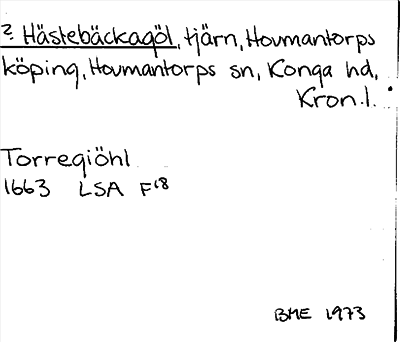 ? Hästebäckagöl, tjärn, Hovmantorps
köping, Hovmantorps sn, Konga hd,
Kron.l.
Torregiöhl
1663 LSA F18
BME 1973